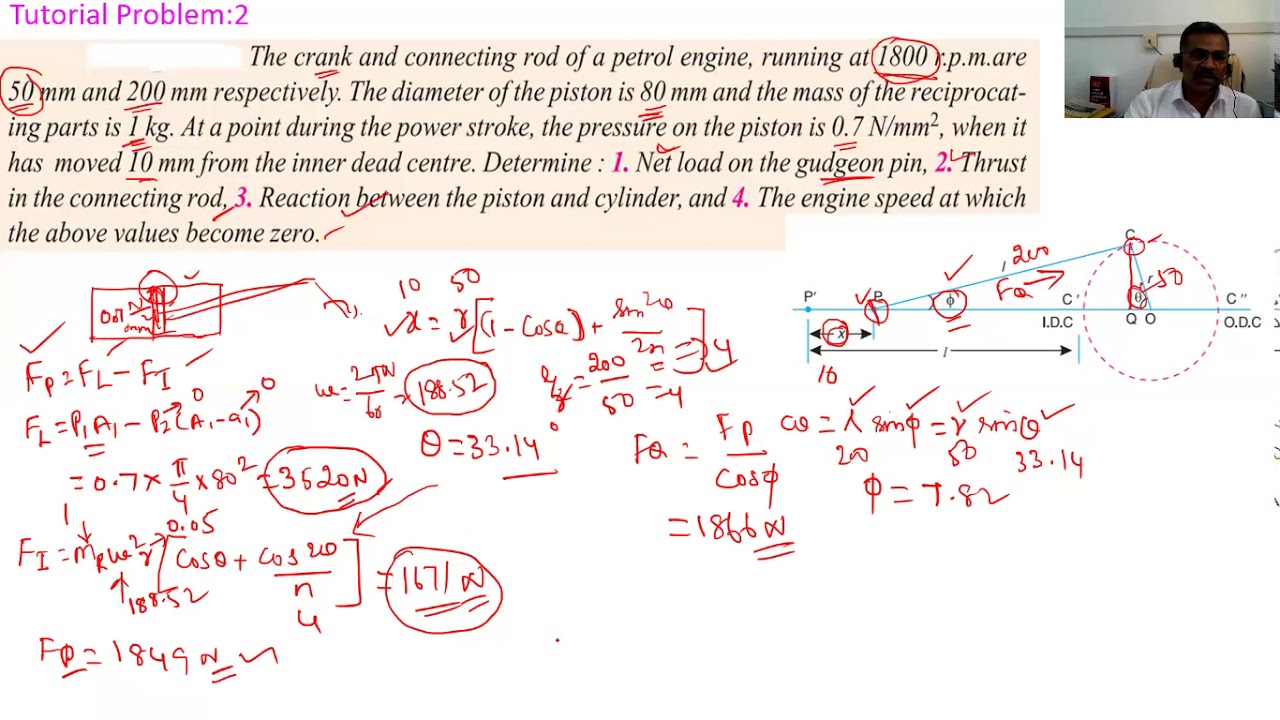 Tutorial Problem:2
The crank and connecting rod of a petrol engine, running at 1800 r.p.m.are
50 mm and 200 mm respectively. The diameter of the piston is 80 mm and the mass of the reciprocat-
ing parts is 1 kg. At a point during the power stroke, the pressure on the piston is 0.7 N/mm², when it
has moved 10 mm from the inner dead centre. Determine : 1. Net load on the gudgeon pin, 2. Thrust
in the connecting rod, 3. Reaction between the piston and cylinder, and 4. The engine speed at which
the above values become zero.
F_P = F_L – F_I
F_L = P₁A₁ – P₂(A₁–a₁)
0 0
= 0.7 × π/4 × 80² = 3520 N
1 0.05
F_I = m_R ω² r [cosθ + cos2θ/n] = 1671 N
188.52 4
F_P = 1849 N
10 50
x = r[(1 – cosθ) + sin²θ/2n] 4
ω = 2πN/60 = 188.52
l/r = 200/50 = 4
θ = 33.14°
F_Q = F_P/cosφ
= 1866 N
CQ = l sinφ = r sinθ
20 50 33.14
φ = 7.82
C
l 200
F_Q
r 50
P' P φ C' θ C"
I.D.C Q O O.D.C
x
l
10